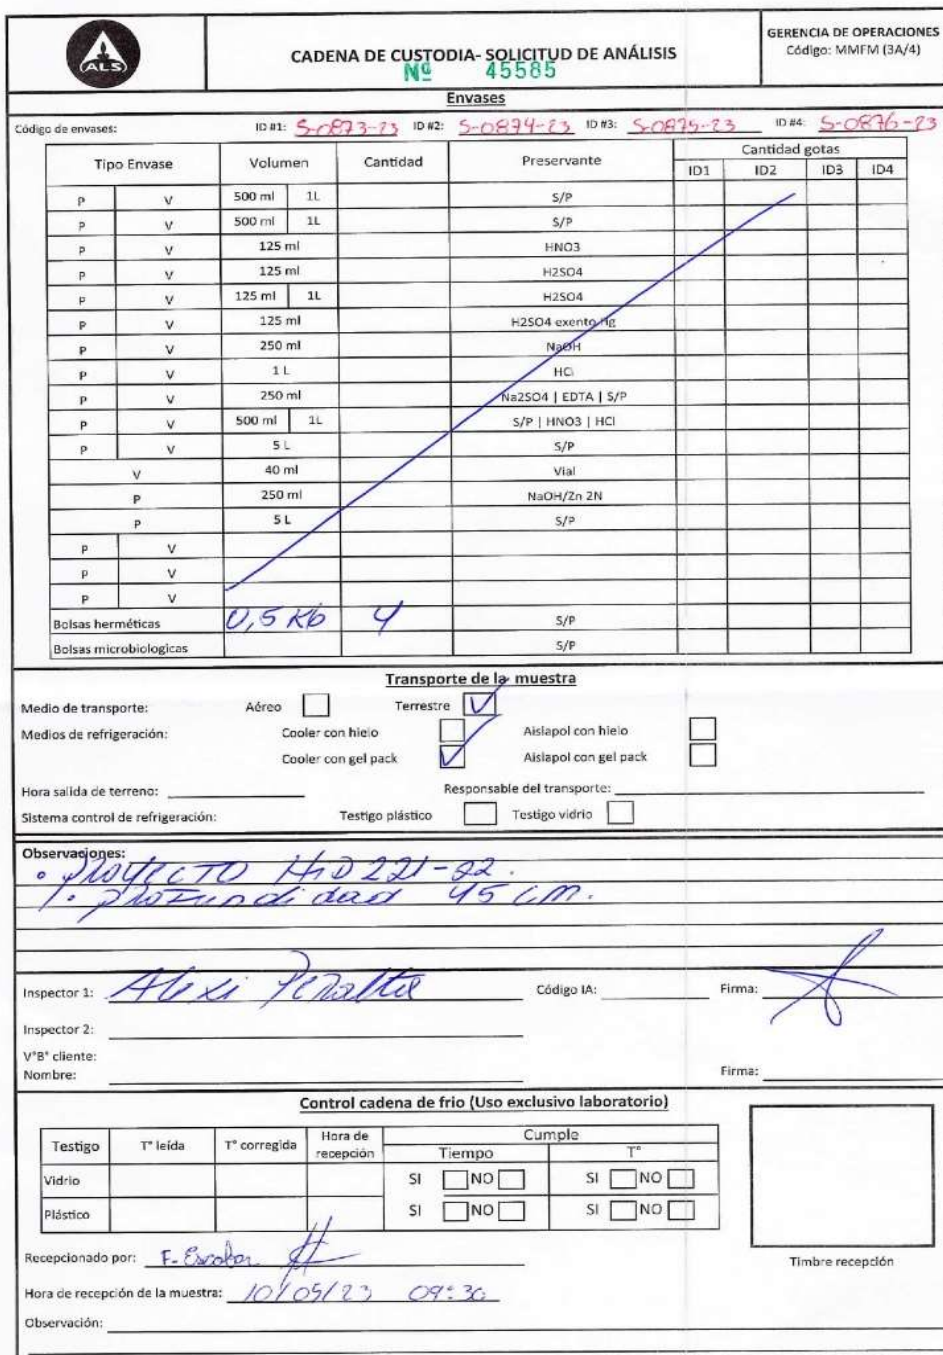 ALS
CADENA DE CUSTODIA- SOLICITUD DE ANÁLISIS
Nº 45585
GERENCIA DE OPERACIONES
Código: MMFM (3A/4)
Envases
Código de envases: ID #1: S-0873-23 ID #2: S-0874-23 ID #3: S-0875-23 ID #4: S-0876-23
Tipo Envase Volumen Cantidad Preservante Cantidad gotas
ID1 ID2 ID3 ID4
P V 500 ml 1L S/P
P V 500 ml 1L S/P
P V 125 ml HNO3
P V 125 ml H2SO4
P V 125 ml 1L H2SO4
P V 125 ml H2SO4 exento Hg
P V 250 ml NaOH
P V 1 L HCl
P V 250 ml Na2SO4 | EDTA | S/P
P V 500 ml 1L S/P | HNO3 | HCl
P V 5 L S/P
V 40 ml Vial
P 250 ml NaOH/Zn 2N
P 5 L S/P
P V
P V
P V
Bolsas herméticas 0,5 KG 4 S/P
Bolsas microbiologicas S/P
Transporte de la muestra
Medio de transporte: Aéreo Terrestre
Medios de refrigeración: Cooler con hielo Aislapol con hielo
Cooler con gel pack Aislapol con gel pack
Hora salida de terreno: Responsable del transporte:
Sistema control de refrigeración: Testigo plástico Testigo vidrio
Observaciones:
• Proyecto HID 221-22.
• Profundidad 45 cm.
Inspector 1: Alexi Peralta Código IA: Firma:
Inspector 2:
V°B° cliente:
Nombre: Firma:
Control cadena de frio (Uso exclusivo laboratorio)
Testigo T° leída T° corregida Hora de recepción Cumple
Tiempo T°
Vidrio SI NO SI NO
Plástico SI NO SI NO
Recepcionado por: F. Escobar
Timbre recepción
Hora de recepción de la muestra: 10/05/23 09:30
Observación: